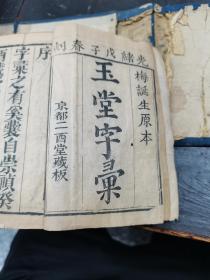 光緒戊子春刻
梅誕生原本
玉堂字彙
京都二酉堂藏板
序
字彙之有奚囊自崇禎癸